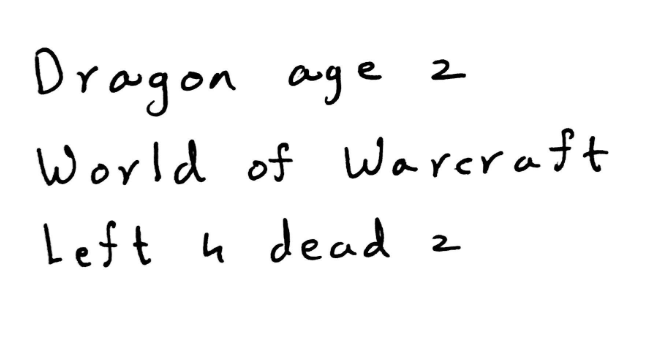 Dragon age 2
World of Warcraft
Left 4 dead 2